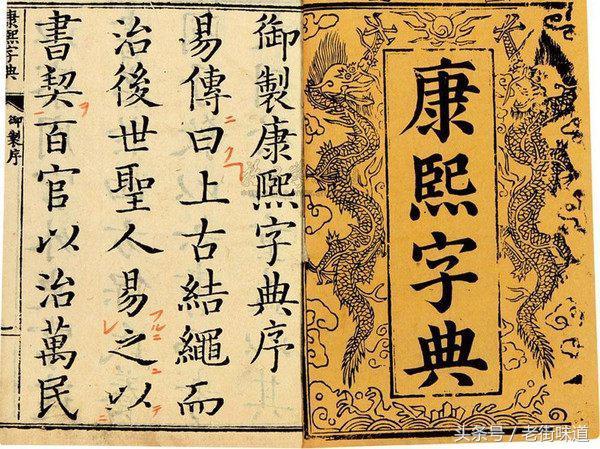 康熙字典
御製康熙字典序
易傳曰上古結繩而
治後世聖人易之以
書契百官以治萬民
康熙字典
御製序
头条号 / 老街味道